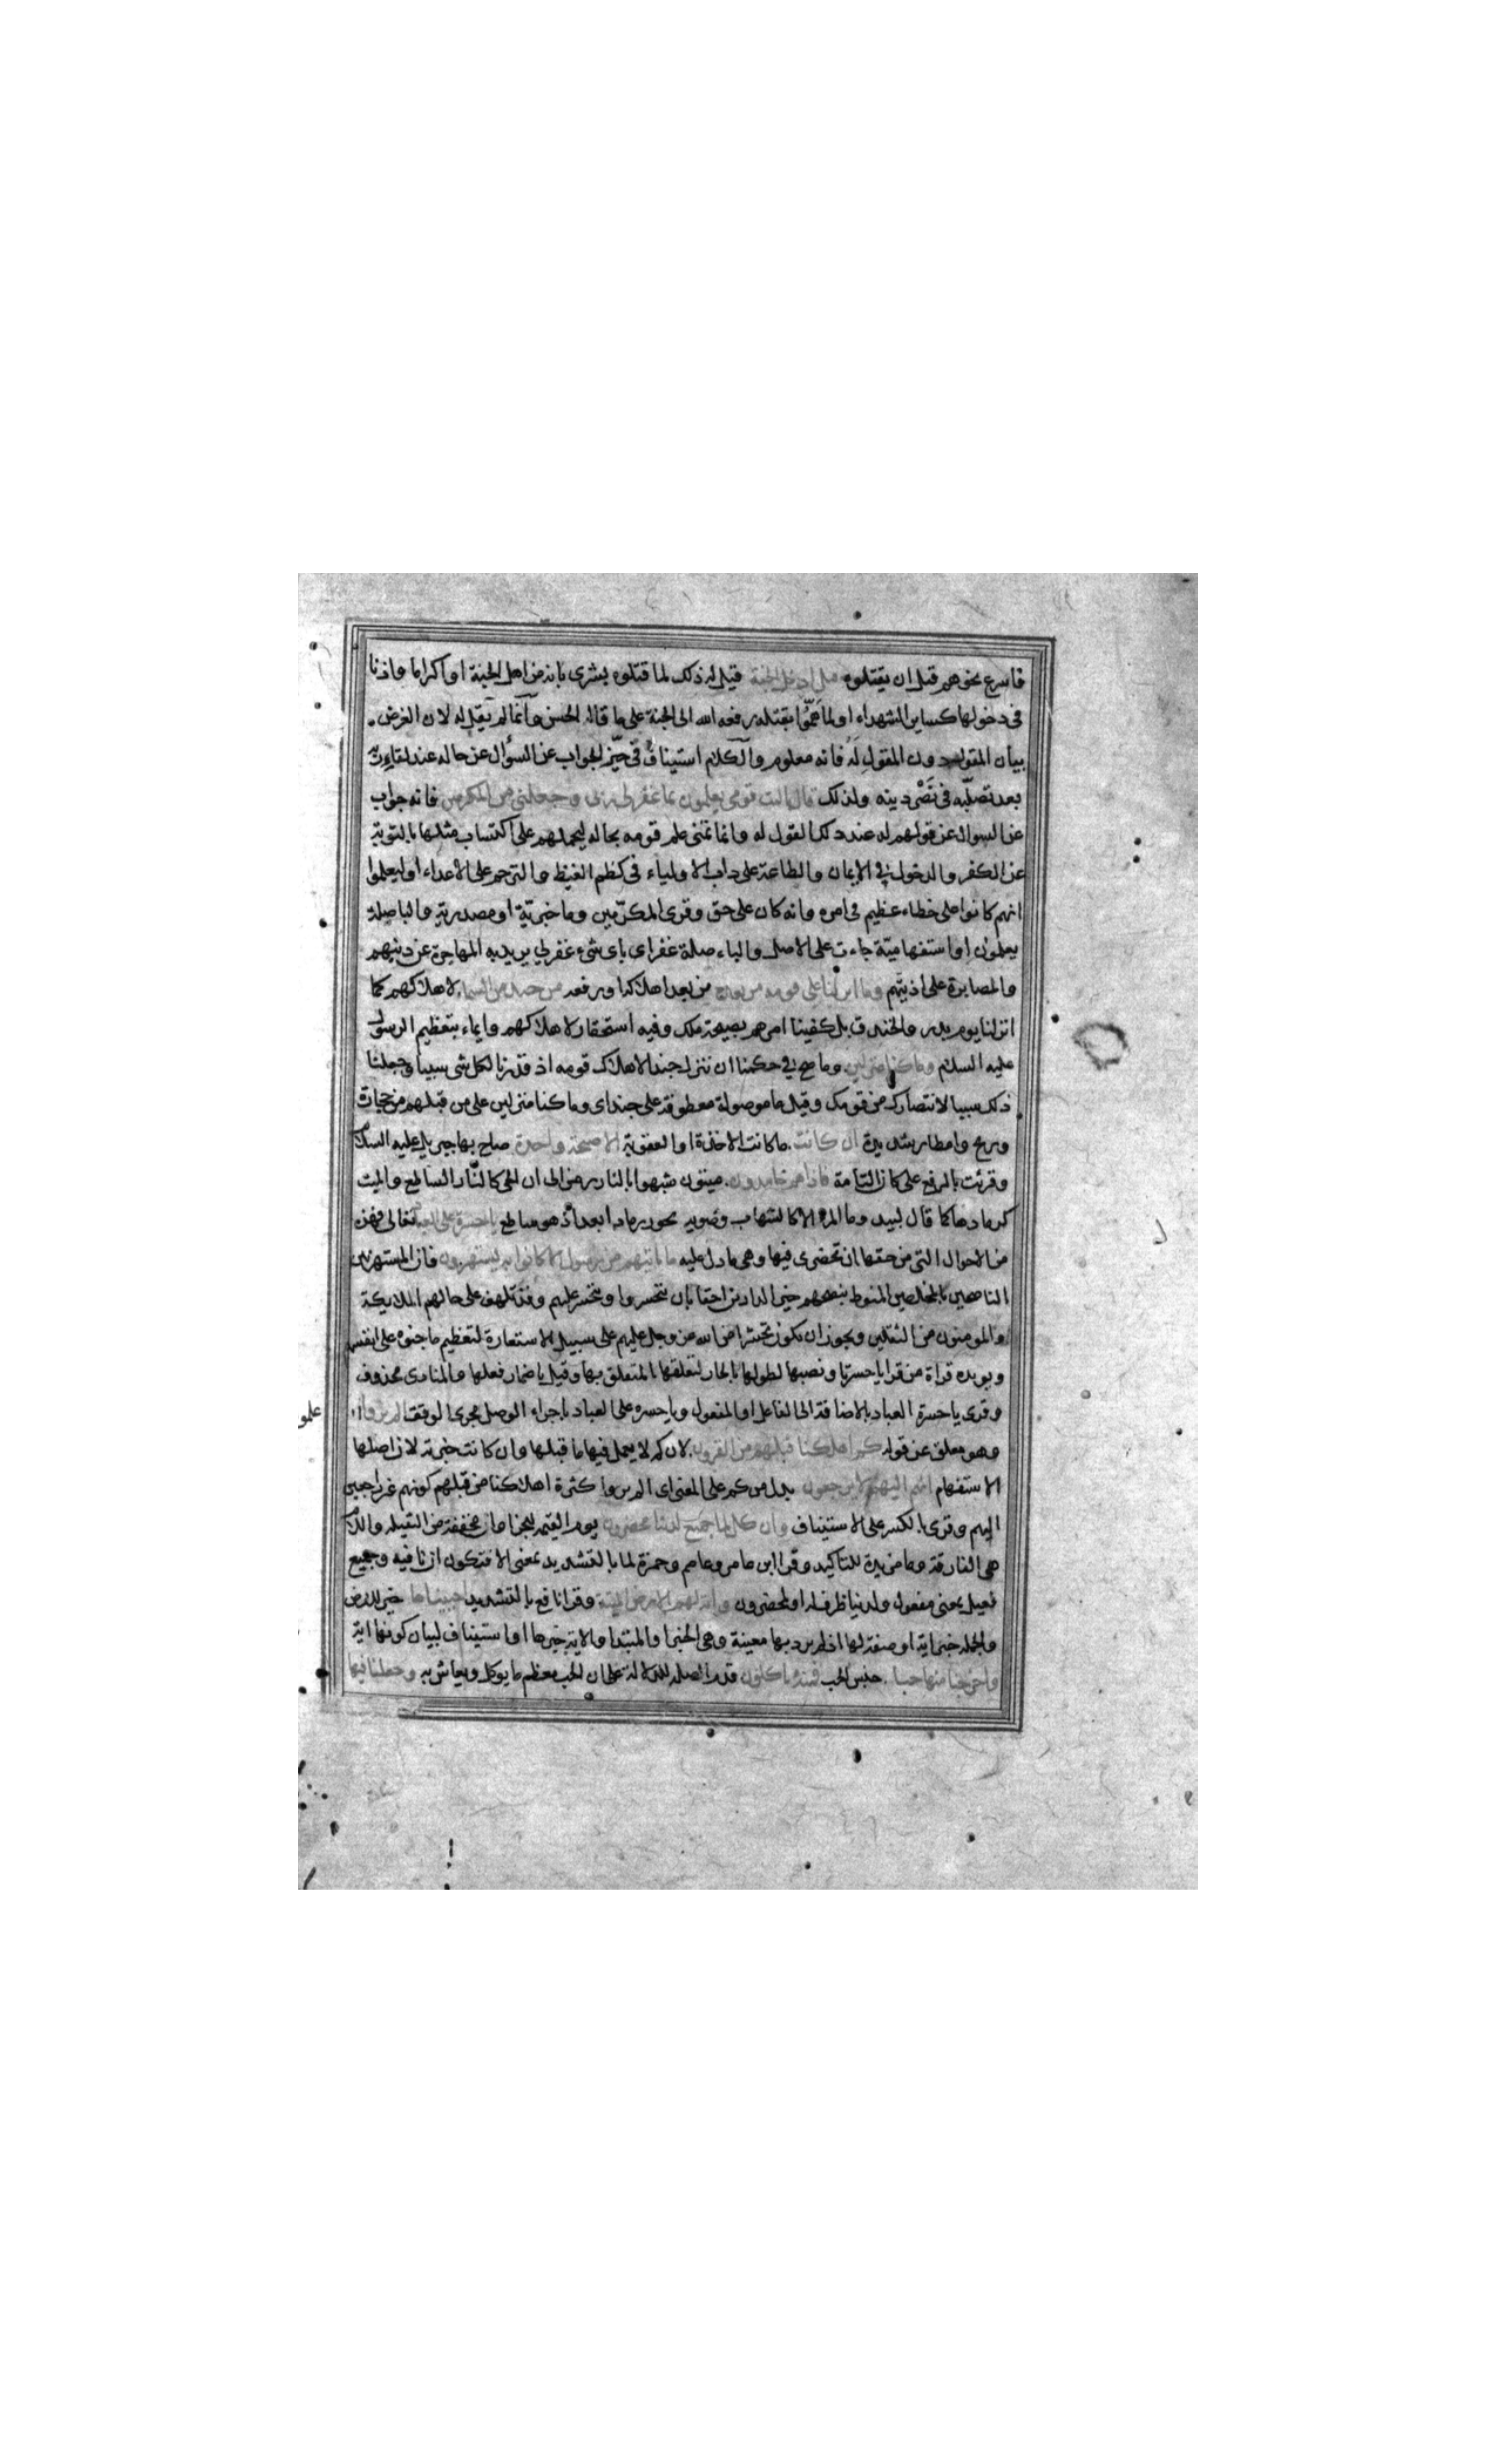 فاسرع نحوهم قبل ان يقتلوه قيل ادخل الجنة قيل له ذلك لما قتلوه بشرى بانه من اهل الجنة او اكراما واذنا
في دخولها كساير الشهداء او لما همّوا بقتله رفعه الله الى الجنة على ما قاله الحسن وانما لم يقل له لان الغرض
بيان المقول دون المقول له فانه معلوم والكلام استيناف في حيّز الجواب عن السؤال عن حاله عند لقاء ربه
بعد تصلّبه في نصر دينه ولذلك قال يا ليت قومي يعلمون بما غفر لي ربي وجعلني من المكرمين فانه جواب
عن السوال عن قوله له عند ذلك القول له وانما تمنى علم قومه بحاله ليحملهم على اكتساب مثلها بالتوبة
عن الكفر والدخول في الايمان والطاعة على داب الاولياء في كظم الغيظ والترحم على الاعداء او ليعلموا
انهم كانوا على خطاء عظيم في امره وانه كان على حق وقرى المكرّمين وما خبريّة او مصدرية والبا صلة
يعلمون او استفهاميّة جاءت على الاصل والباء صلة غفر اى باى شىء غفر لي يريد به المهاجرة عن دينهم
والمصابرة على اذيتهم وما انزلنا على قومه من بعده من بعد اهلاكه او رفعه من جند من السماء لاهلاكهم كما
انزلنا يوم بدر والخندق بل كفينا امرهم بصيحة ملك وفيه استحقار لاهلاكهم وايماء بتعظيم الرسول
عليه السلام وما كنا منزلين وما صح في حكمنا ان ننزل جندا لاهلاك قومه اذ قدرنا لكل شى سببا وجعلنا
ذلك سببا لانتصارك من قومك وقيل ما موصولة معطوفة على جند اى وما كنا منزلين على من قبلهم من حجارة
وريح وامطار شديدة ان كانت ما كانت الاخذة او العقوبة الا صيحة واحدة صاح بها جبريل عليه السلام
وقرئت بالرفع على كان التامة فاذا هم خامدون ميتون شبهوا بالنار رمزا الى ان الحى كالنّار الساطع والميت
كرمادها كما قال لبيد وما المرء الا كالشهاب وضويه يحور رمادا بعد اذ هو ساطع يا حسرة على العباد تعالى فهذه
من الاحوال التي من حقها ان تحضرى فيها وهي ما دل عليه ما ياتيهم من رسول الا كانوا به يستهزون فان المستهزين
الناصحين المخلصين المنوط بنصحهم خير الدارين احقا بان يتحسروا ويتحسر عليهم وقد تلهف على حالهم الملايكة
والمومنون من الثقلين ويجوز ان يكون تحسّرا من الله عز وجل عليهم على سبيل الاستعارة لتعظيم ما جنوه على انفسهم
ويويده قراة من قرا يا حسرتا ونصبها لطولها بالجار لتعلقها المتعلق بها وقيل باضمار فعلها والمنادى محذوف
وقرى يا حسرة العباد بالاضافة الى الفاعل او المفعول ويا حسره على العباد باجراء الوصل مجرى الوقف الم يروا
علمو
وهو معلق عن قوله كم اهلكنا قبلهم من القرون لان كم لا يعمل فيها ما قبلها وان كانت خبرية لان اصلها
الاستفهام انهم اليهم لا يرجعون بدل من كم على المعنى اى الم يروا كثرة اهلاكنا من قبلهم كونهم غير راجعين
اليهم وقرى بالكسر على الاستيناف وان كل لما جميع لدينا محضرون يوم القيمة للجزا وان مخففة من الثقيله واللام
هي الفارقة وما مزيدة للتاكيد وقرا ابن عامر وعاصم وحمزة لما بالتشديد بمعنى الا فتكون ان نافيه وجميع
فعيل بمعنى مفعول ولدينا ظرف له او لمحضرون واية لهم الارض الميتة وقرا نافع بالتشديد احييناها خبر للارض
والجمله خبر اية او صفة لها اذ لم يرد بها معينة وهي الخبر او المبتدا والاية خبرها او استيناف لبيان كونها اية
واخرجنا منها حبا جنس الحب فمنه ياكلون قدم الصله للدلالة على ان الحب معظم ما يوكل ويعاش به وجعلنا فيها